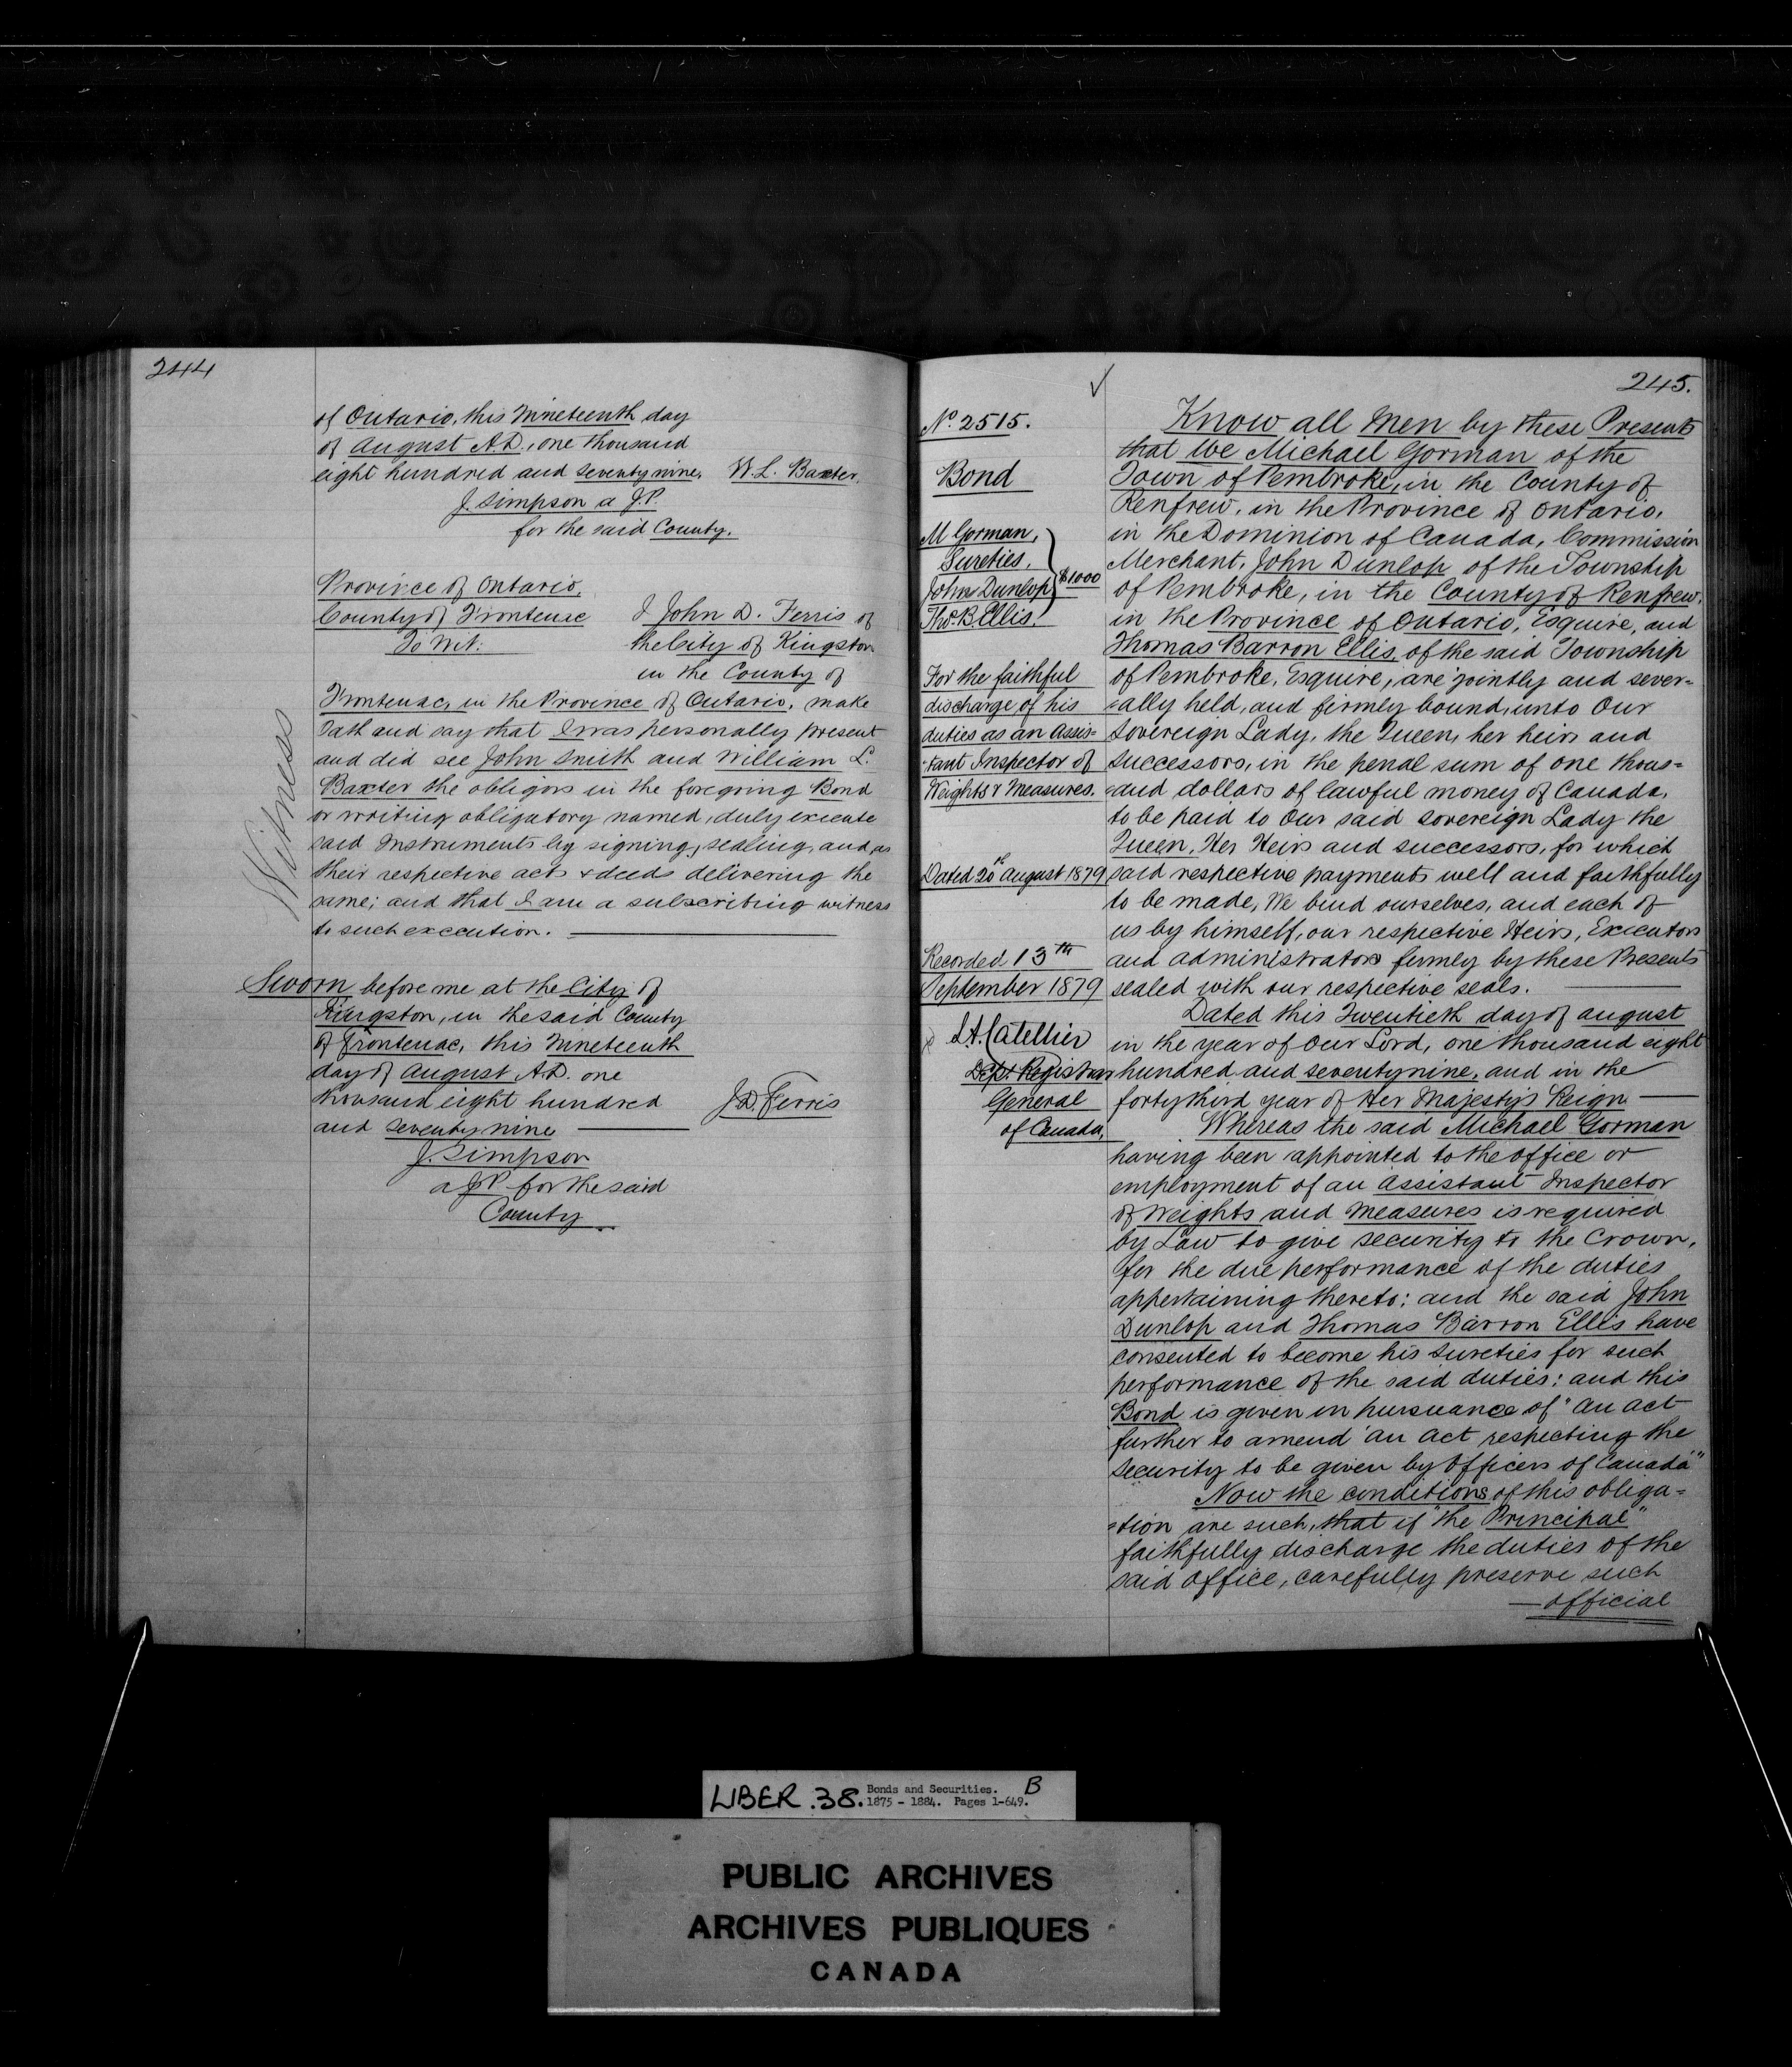 244
of Ontario, this Nineteenth day
of August A.D., one thousand
eight hundred and seventy nine, W. L. Baxter.
J. Simpson a J.P.
for the said County.
Province of Ontario,
County of Frontenac
To Wit:
I John D. Ferris of
the City of Kingston
in the County of
Frontenac, in the Province of Ontario, make
Oath and say that I was personally present
and did see John Smith and William L.
Baxter the obligors in the foregoing Bond
or writing obligatory named, duly execute
said Instruments by signing, sealing, and, as
their respective acts & deeds delivering the
same; and that I am a subscribing witness
to such execution.
Witness
Sworn before me at the City of
Kingston, in the said County
of Frontenac, this Nineteenth
day of August A.D. one
thousand eight hundred
and seventy nine
J.D. Ferris
J. Simpson
a J.P. for the said
County
245.
No. 2515.
Bond
M Gorman,
Sureties,
John Dunlop
Tho. B. Ellis.
$1000
For the faithful
discharge of his
duties as an Assis=
tant Inspector of
Weights & Measures.
Dated 20th August 1879
Recorded 13th
September 1879
L.A. Catellier
Dept. Registrar
General
of Canada,
Know all Men by these Presents
that We Michael Gorman of the
Town of Pembroke, in the County of
Renfrew, in the Province of Ontario,
in the Dominion of Canada, Commission
Merchant, John Dunlop of the Township
of Pembroke, in the County of Renfrew,
in the Province of Ontario, Esquire, and
Thomas Barron Ellis, of the said Township
of Pembroke, Esquire, are jointly and sever=
=ally held, and firmly bound, unto Our
Sovereign Lady, the Queen, her heirs and
successors, in the penal sum of one thous=
=and dollars of lawful money of Canada,
to be paid to Our said sovereign Lady the
Queen, Her Heirs and successors, for which
said respective payments well and faithfully
to be made, We bind ourselves, and each of
us by himself, our respective Heirs, Executors
and administrators firmly by these Presents
sealed with our respective seals.
Dated this Twentieth day of August
in the year of Our Lord, one thousand eight
hundred and seventy nine, and in the
forty third year of Her Majesty's Reign
Whereas the said Michael Gorman
having been appointed to the office or
employment of an Assistant Inspector
of Weights and Measures is required
by Law to give security to the Crown,
for the due performance of the duties
appertaining thereto: and the said John
Dunlop and Thomas Barron Ellis have
consented to become his Sureties for such
performance of the said duties: and this
Bond is given in pursuance of "An Act
further to amend 'An Act respecting the
Security to be given by Officers of Canada'"
Now the conditions of this obliga=
=tion are such, that if "the Principal"
faithfully discharge the duties of the
said Office, carefully preserve such
official
LIBER. 38. Bonds and Securities. B
1875 - 1884. Pages 1-649.
PUBLIC ARCHIVES
ARCHIVES PUBLIQUES
CANADA